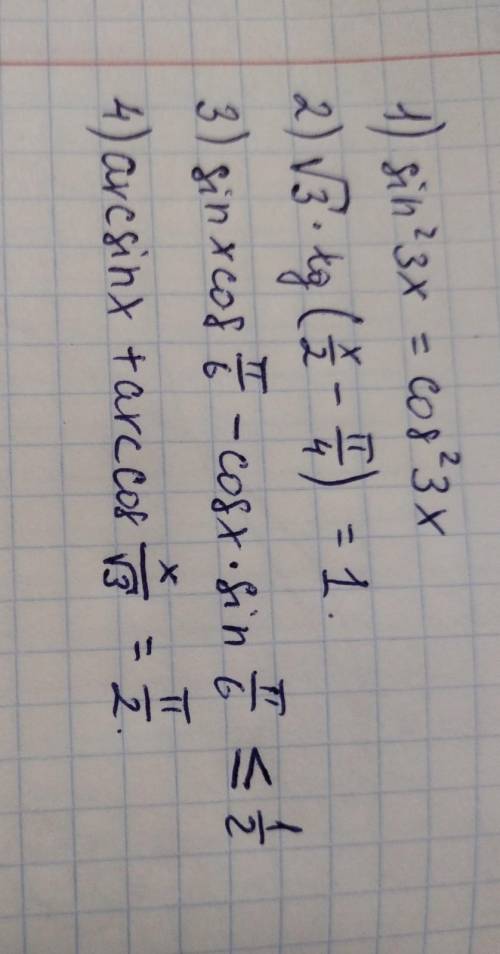 1) sin²3x = cos²3x
2) √3 · tg (x/2 − π/4) = 1.
3) sin x cos π/6 − cos x · sin π/6 ≤ 1/2
4) arcsin x + arccos x/√3 = π/2.